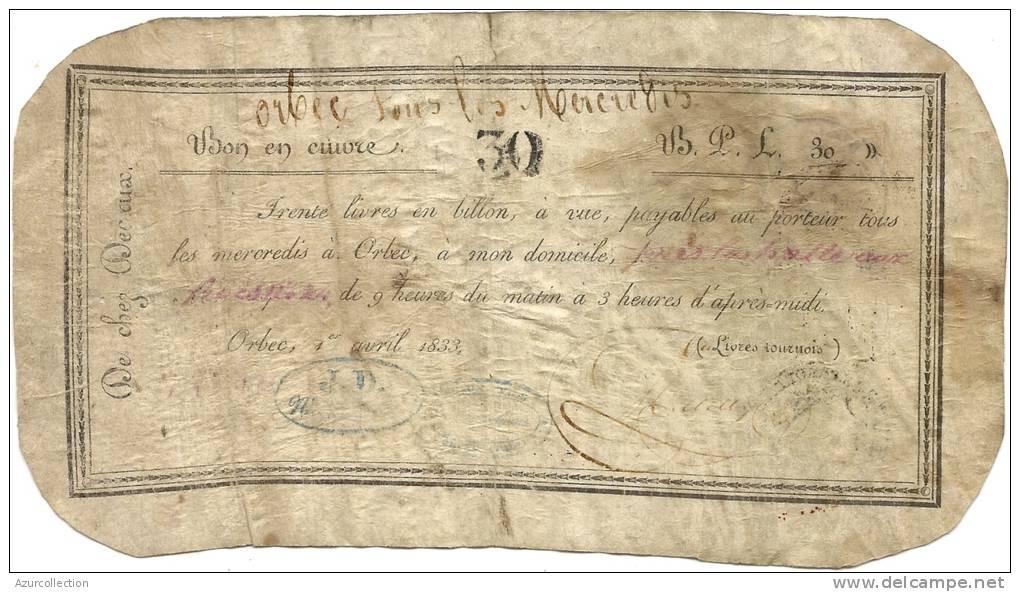 Orbec tous les Mercredis
Bon en cuivre. 30 B. P. L. 30 »
De chez Decaux.
Trente livres en billon, à vue, payables au porteur tous
les mercredis à Orbec, à mon domicile,
de 9 heures du matin à 3 heures d'après-midi.
Orbec, 1er avril 1833. (Livres tournois)
J. D.
Nº
Azurcollection
delcampe.net